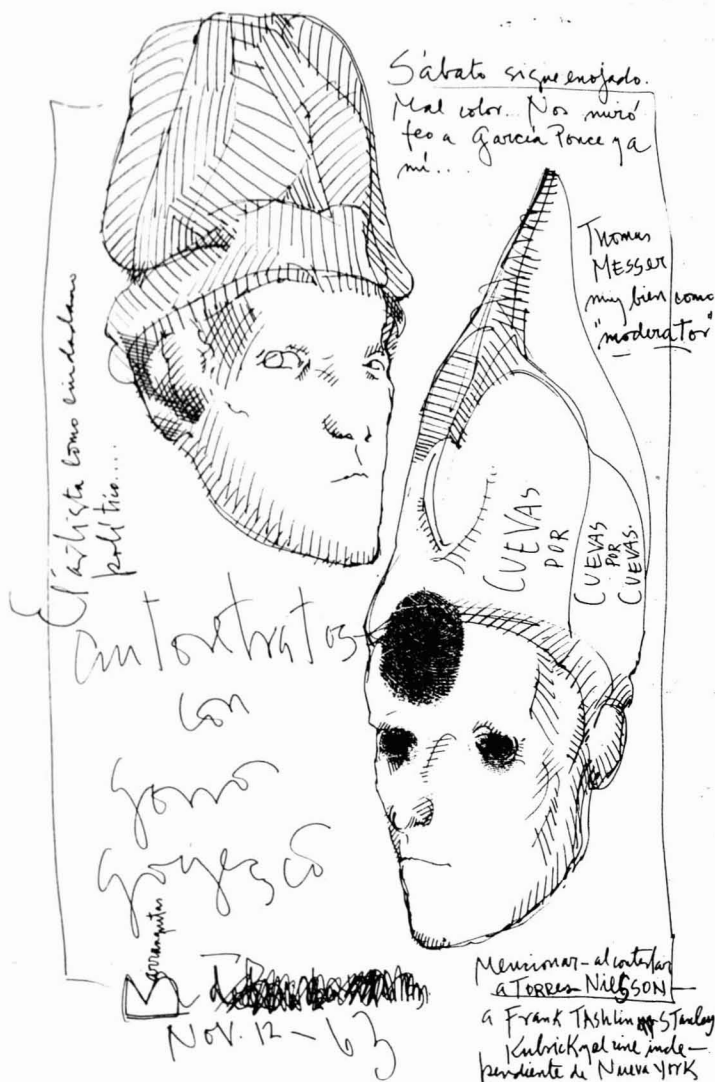 Sábato sigue enojado.
Mal color. Nos miró
feo a García Ponce y a
mí...
Thomas
MESSER
muy bien como
"moderator"
El artista como ciudadano
político....
CUEVAS
POR
CUEVAS
POR
CUEVAS.
autoretratos
con
gorro
goyesco
Barranquitas
NOV. 12 - 63
Mencionar - al contestar
a TORRES NILSSON -
a Frank TAShlin Stanley
Kubrick y el cine inde-
pendiente de Nueva York